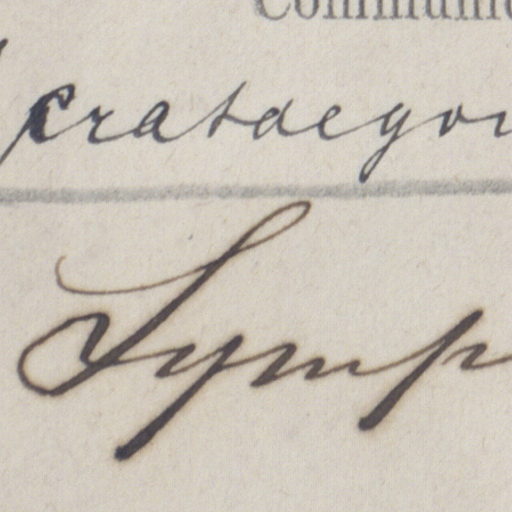 Communi
crataegon
Symp